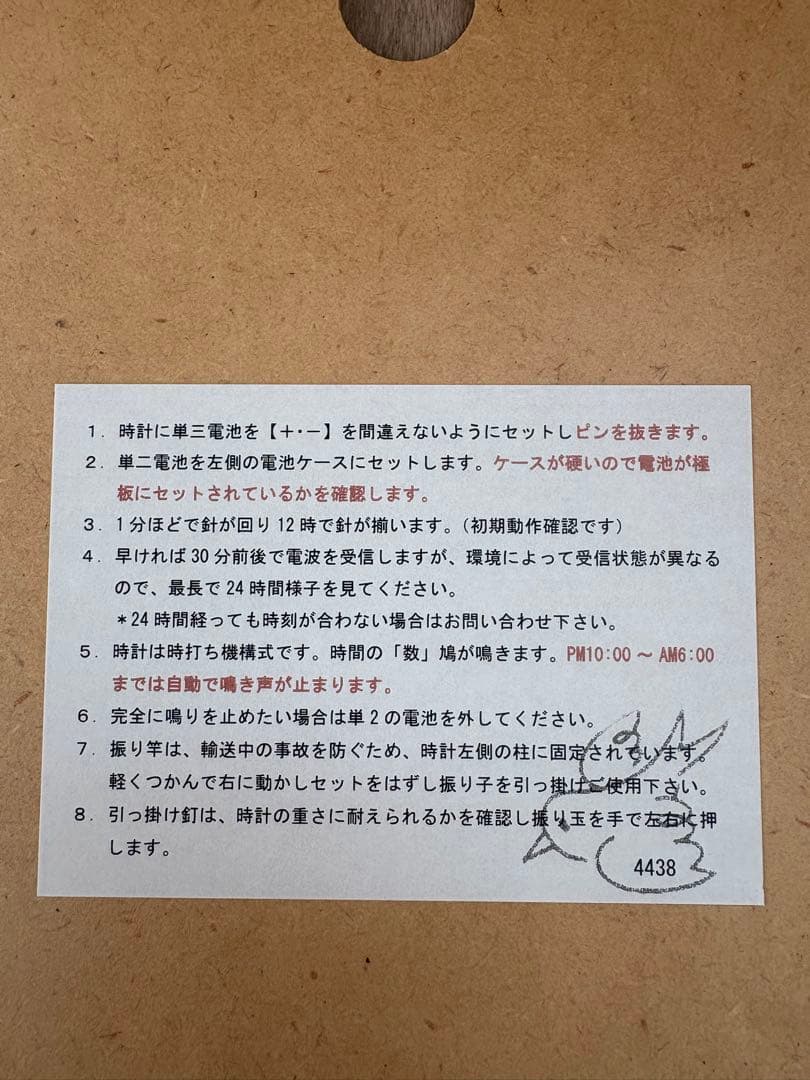 1. 時計に単三電池を【＋・－】を間違えないようにセットしピンを抜きます。
2. 単二電池を左側の電池ケースにセットします。ケースが硬いので電池が極
板にセットされているかを確認します。
3. 1分ほどで針が回り12時で針が揃います。(初期動作確認です)
4. 早ければ30分前後で電波を受信しますが、環境によって受信状態が異なる
ので、最長で24時間様子を見てください。
＊24時間経っても時刻が合わない場合はお問い合わせ下さい。
5. 時計は時打ち機構式です。時間の「数」鳩が鳴きます。PM10:00～AM6:00
までは自動で鳴き声が止まります。
6. 完全に鳴りを止めたい場合は単2の電池を外してください。
7. 振り竿は、輸送中の事故を防ぐため、時計左側の柱に固定されています。
軽くつかんで右に動かしセットをはずし振り子を引っ掛けご使用下さい。
8. 引っ掛け釘は、時計の重さに耐えられるかを確認し振り玉を手で左右に押
します。
4438